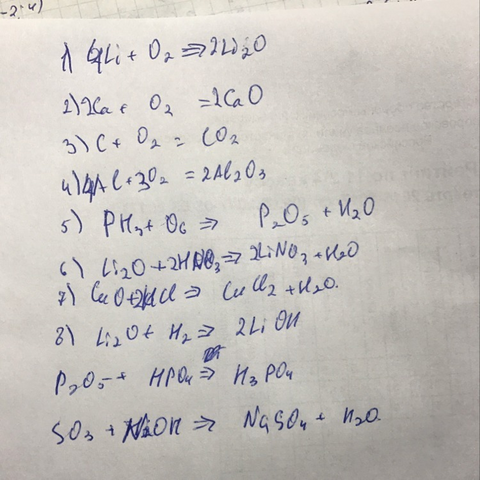 -2; 4)
1) 4Li + O₂ ⇒ 2Li₂O
2) 2Ca + O₂ = 2CaO
3) C + O₂ = CO₂
4) 4Al + 3O₂ = 2Al₂O₃
5) PH₃ + O₆ ⇒ P₂O₅ + H₂O
6) Li₂O + 2HNO₃ ⇒ 2LiNO₃ + H₂O
7) CuO + 2HCl ⇒ CuCl₂ + H₂O.
8) Li₂O + H₂ ⇒ 2LiOH
P₂O₅ + HPO₄ ⇒ H₃PO₄
SO₃ + NaOH ⇒ NaSO₄ + H₂O.